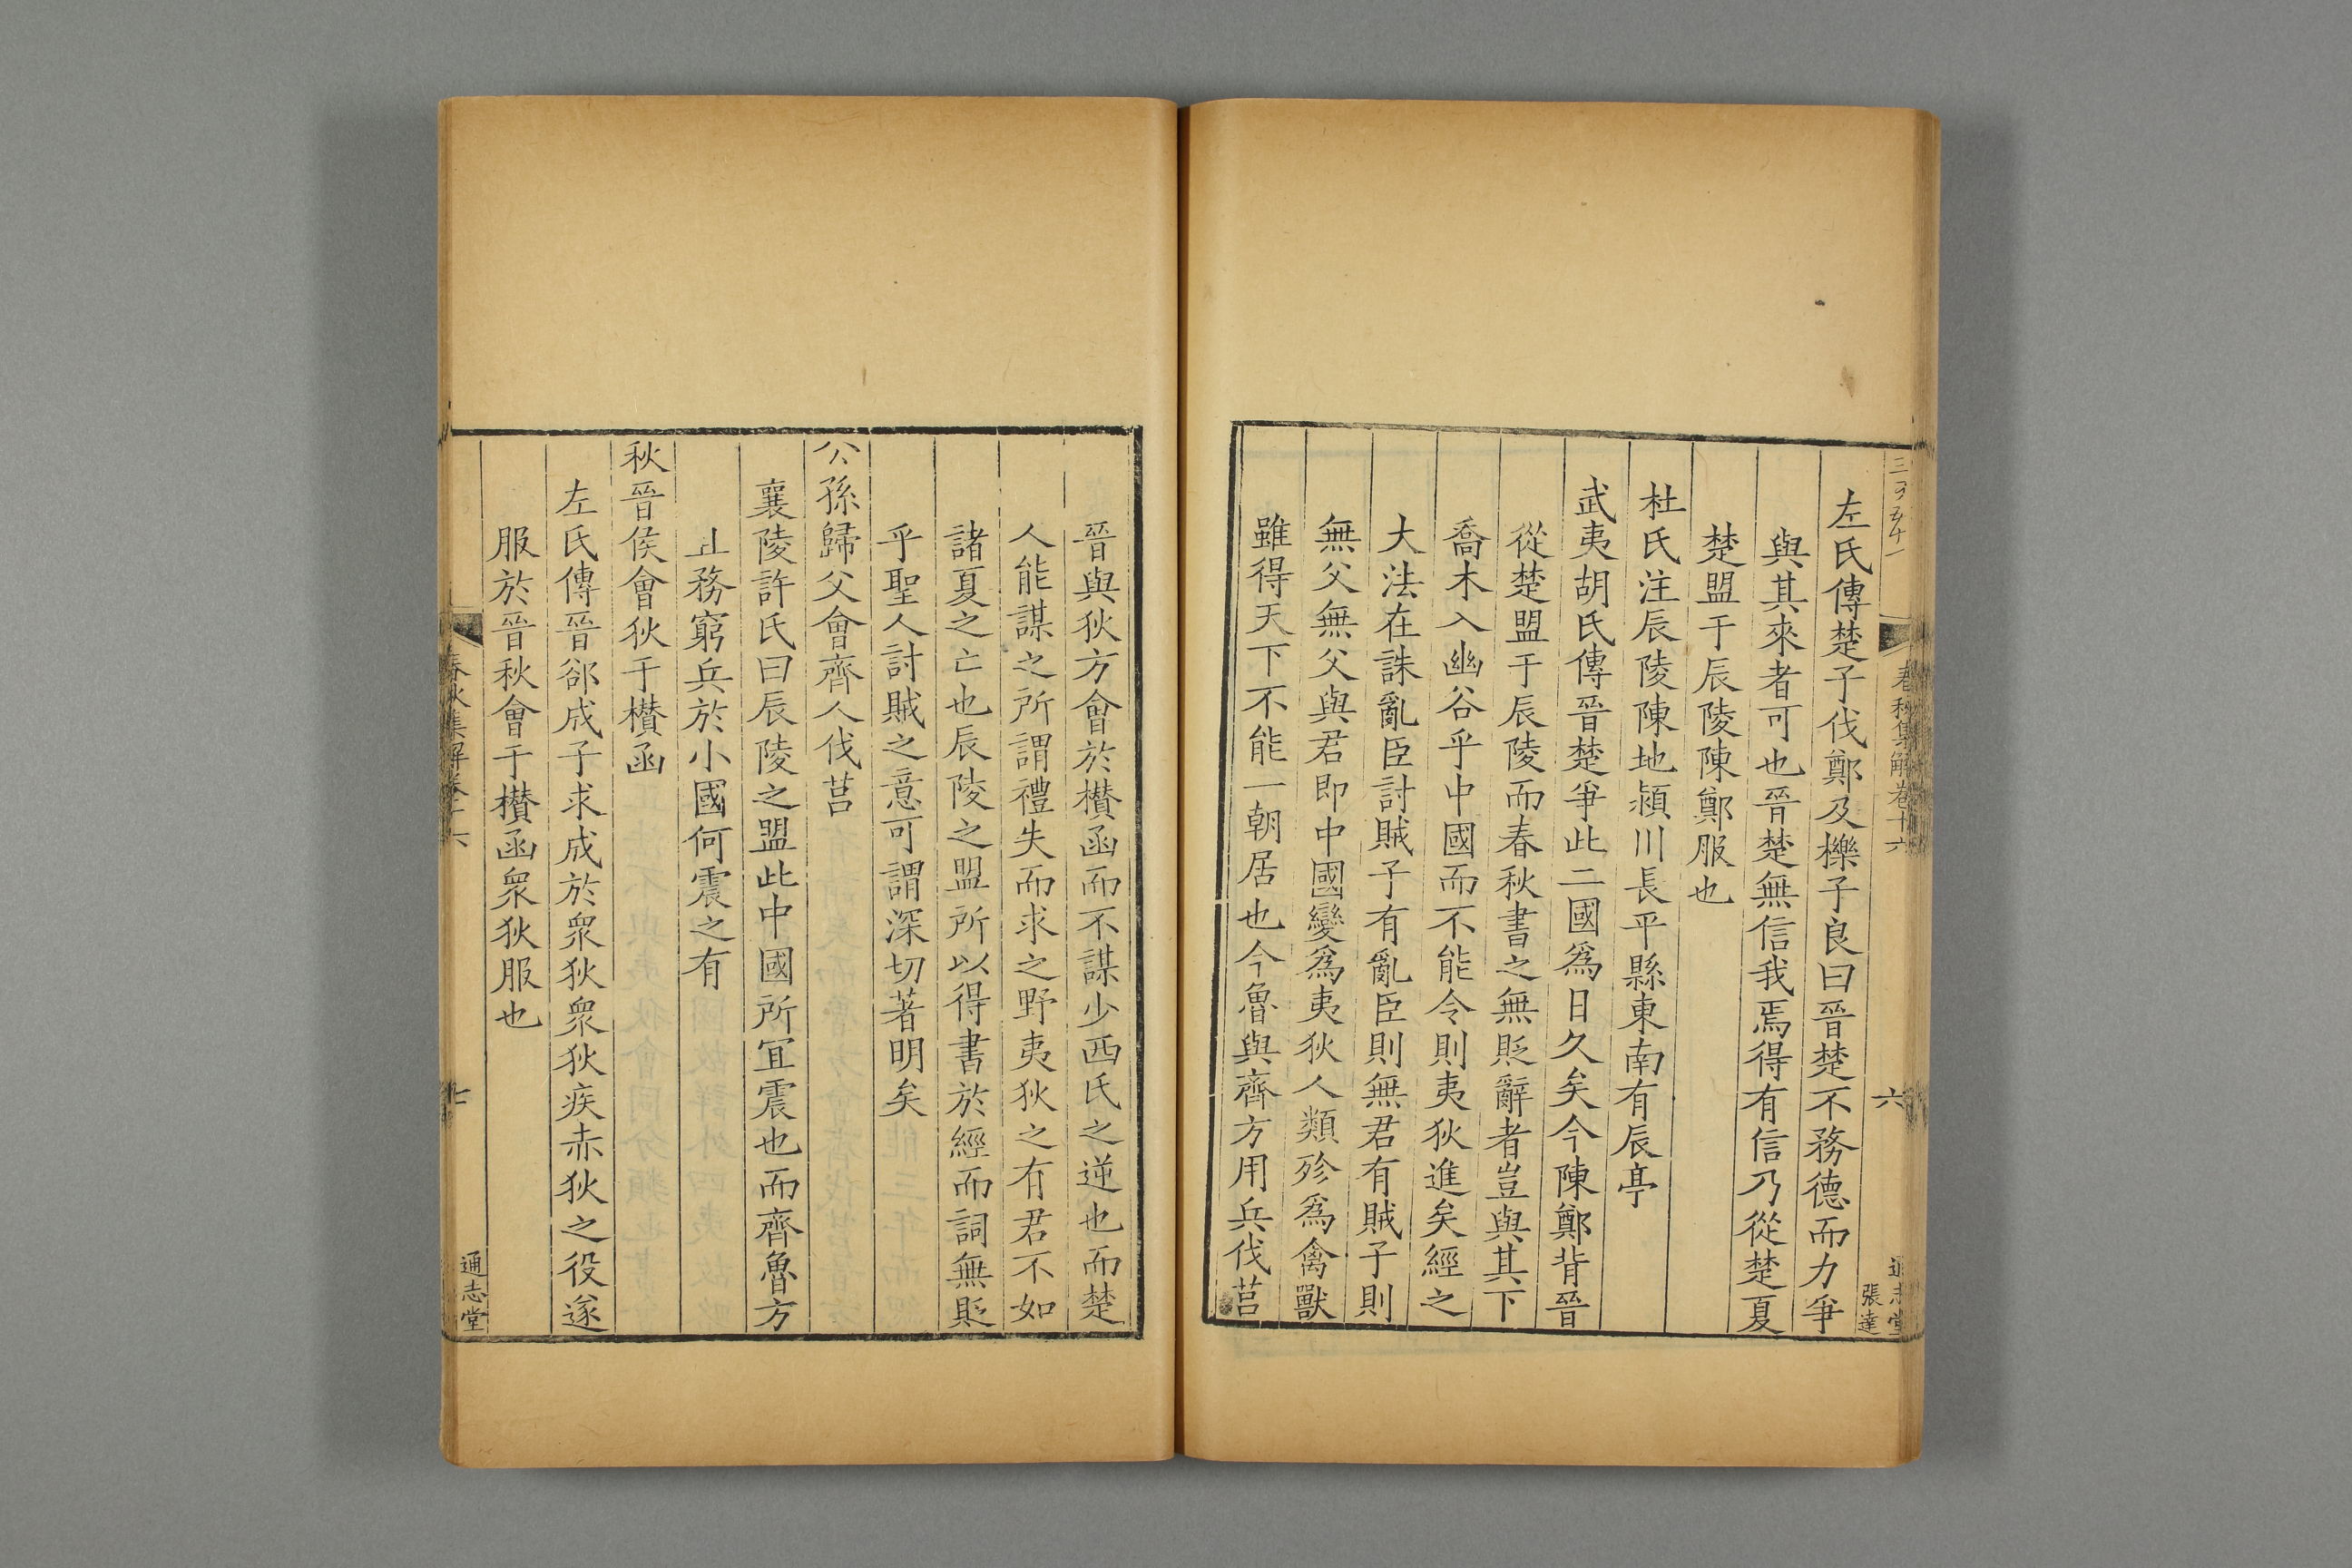 春秋集解卷十六
六
通志堂
張達
左氏傳楚子伐鄭及櫟子良曰晉楚不務德而力爭
與其來者可也晉楚無信我焉得有信乃從楚夏
楚盟于辰陵陳鄭服也
杜氏注辰陵陳地潁川長平縣東南有辰亭
武夷胡氏傳晉楚爭此二國爲日久矣今陳鄭背晉
從楚盟于辰陵而春秋書之無貶辭者豈與其下
喬木入幽谷乎中國而不能令則夷狄進矣經之
大法在誅亂臣討賊子有亂臣則無君有賊子則
無父無父與君即中國變爲夷狄人類殄爲禽獸
雖得天下不能一朝居也今魯與齊方用兵伐莒
晉與狄方會於欑函而不謀少西氏之逆也而楚
人能謀之所謂禮失而求之野夷狄之有君不如
諸夏之亡也辰陵之盟所以得書於經而詞無貶
乎聖人討賊之意可謂深切著明矣
公孫歸父會齊人伐莒
襄陵許氏曰辰陵之盟此中國所宜震也而齊魯方
且務窮兵於小國何震之有
秋晉侯會狄于欑函
左氏傳晉郤成子求成於衆狄衆狄疾赤狄之役遂
服於晉秋會于欑函衆狄服也
春秋集解卷十六
七
通志堂